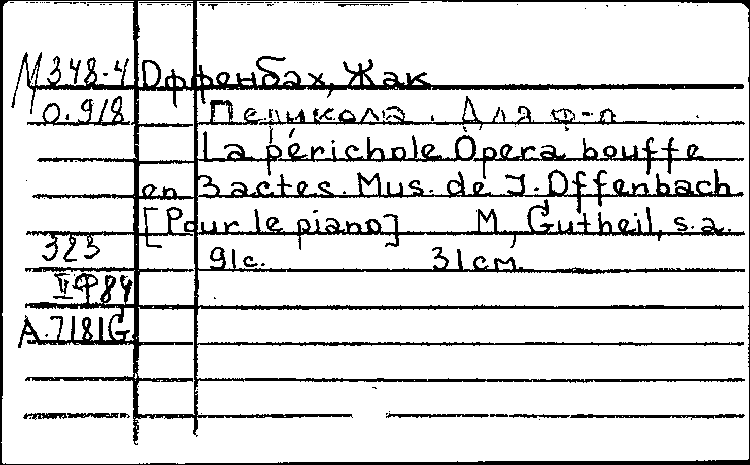 М348-4 Оффенбах, Жак
О.918 Перикола. Для ф-п
La périchole Opera bouffe
en 3 actes. Mus. de J. Offenbach
[Pour le piano] M., Gutheil, s.a.
323
91с. 31см.
IIФ84
А.7181G.